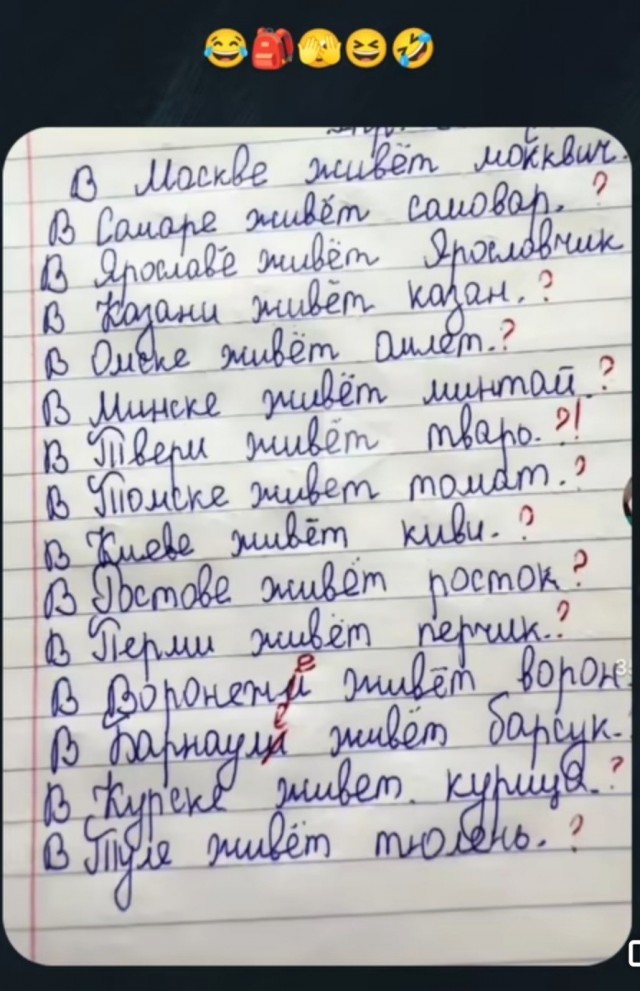 В Москве живёт москвич.
В Самаре живёт самовар. ?
В Ярославе живёт Ярославчик
В Казани живёт казан. ?
В Омске живёт омлет. ?
В Минске живёт минтай. ?
В Твери живёт тварь. ?!
В Томске живет томат. ?
В Киеве живёт киви. ?
В Ростове живёт росток ?
В Перми живёт перчик. ?
В Воронежи е живёт ворон
В Барнаули е живёт барсук.
В Курске живет. курица. ?
В Туле живёт тюлень. ?